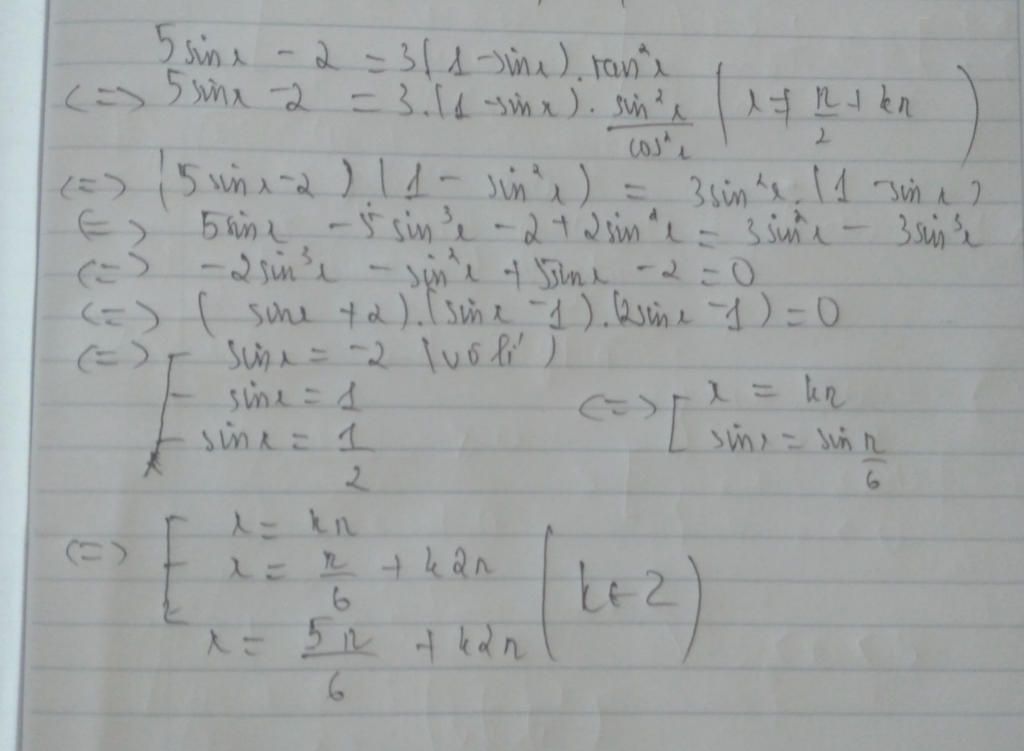 5sinx - 2 = 3(1 - sinx).tan²x
<=> 5sinx - 2 = 3.(1 - sinx). sin²x/cos²x (x ≠ π/2 + kπ)
<=> (5sinx - 2)(1 - sin²x) = 3sin²x.(1 - sinx)
<=> 5sinx - 5sin³x - 2 + 2sin²x = 3sin²x - 3sin³x
<=> -2sin³x - sin²x + 5sinx - 2 = 0
<=> (sinx + 2).(sinx - 1).(2sinx - 1) = 0
<=> [ sinx = -2 (vô lí)
sinx = 1 <=> [ x = kπ
sinx = 1/2 sinx = sin π/6
<=> [ x = kπ
x = π/6 + k2π (k ∈ Z)
x = 5π/6 + k2π